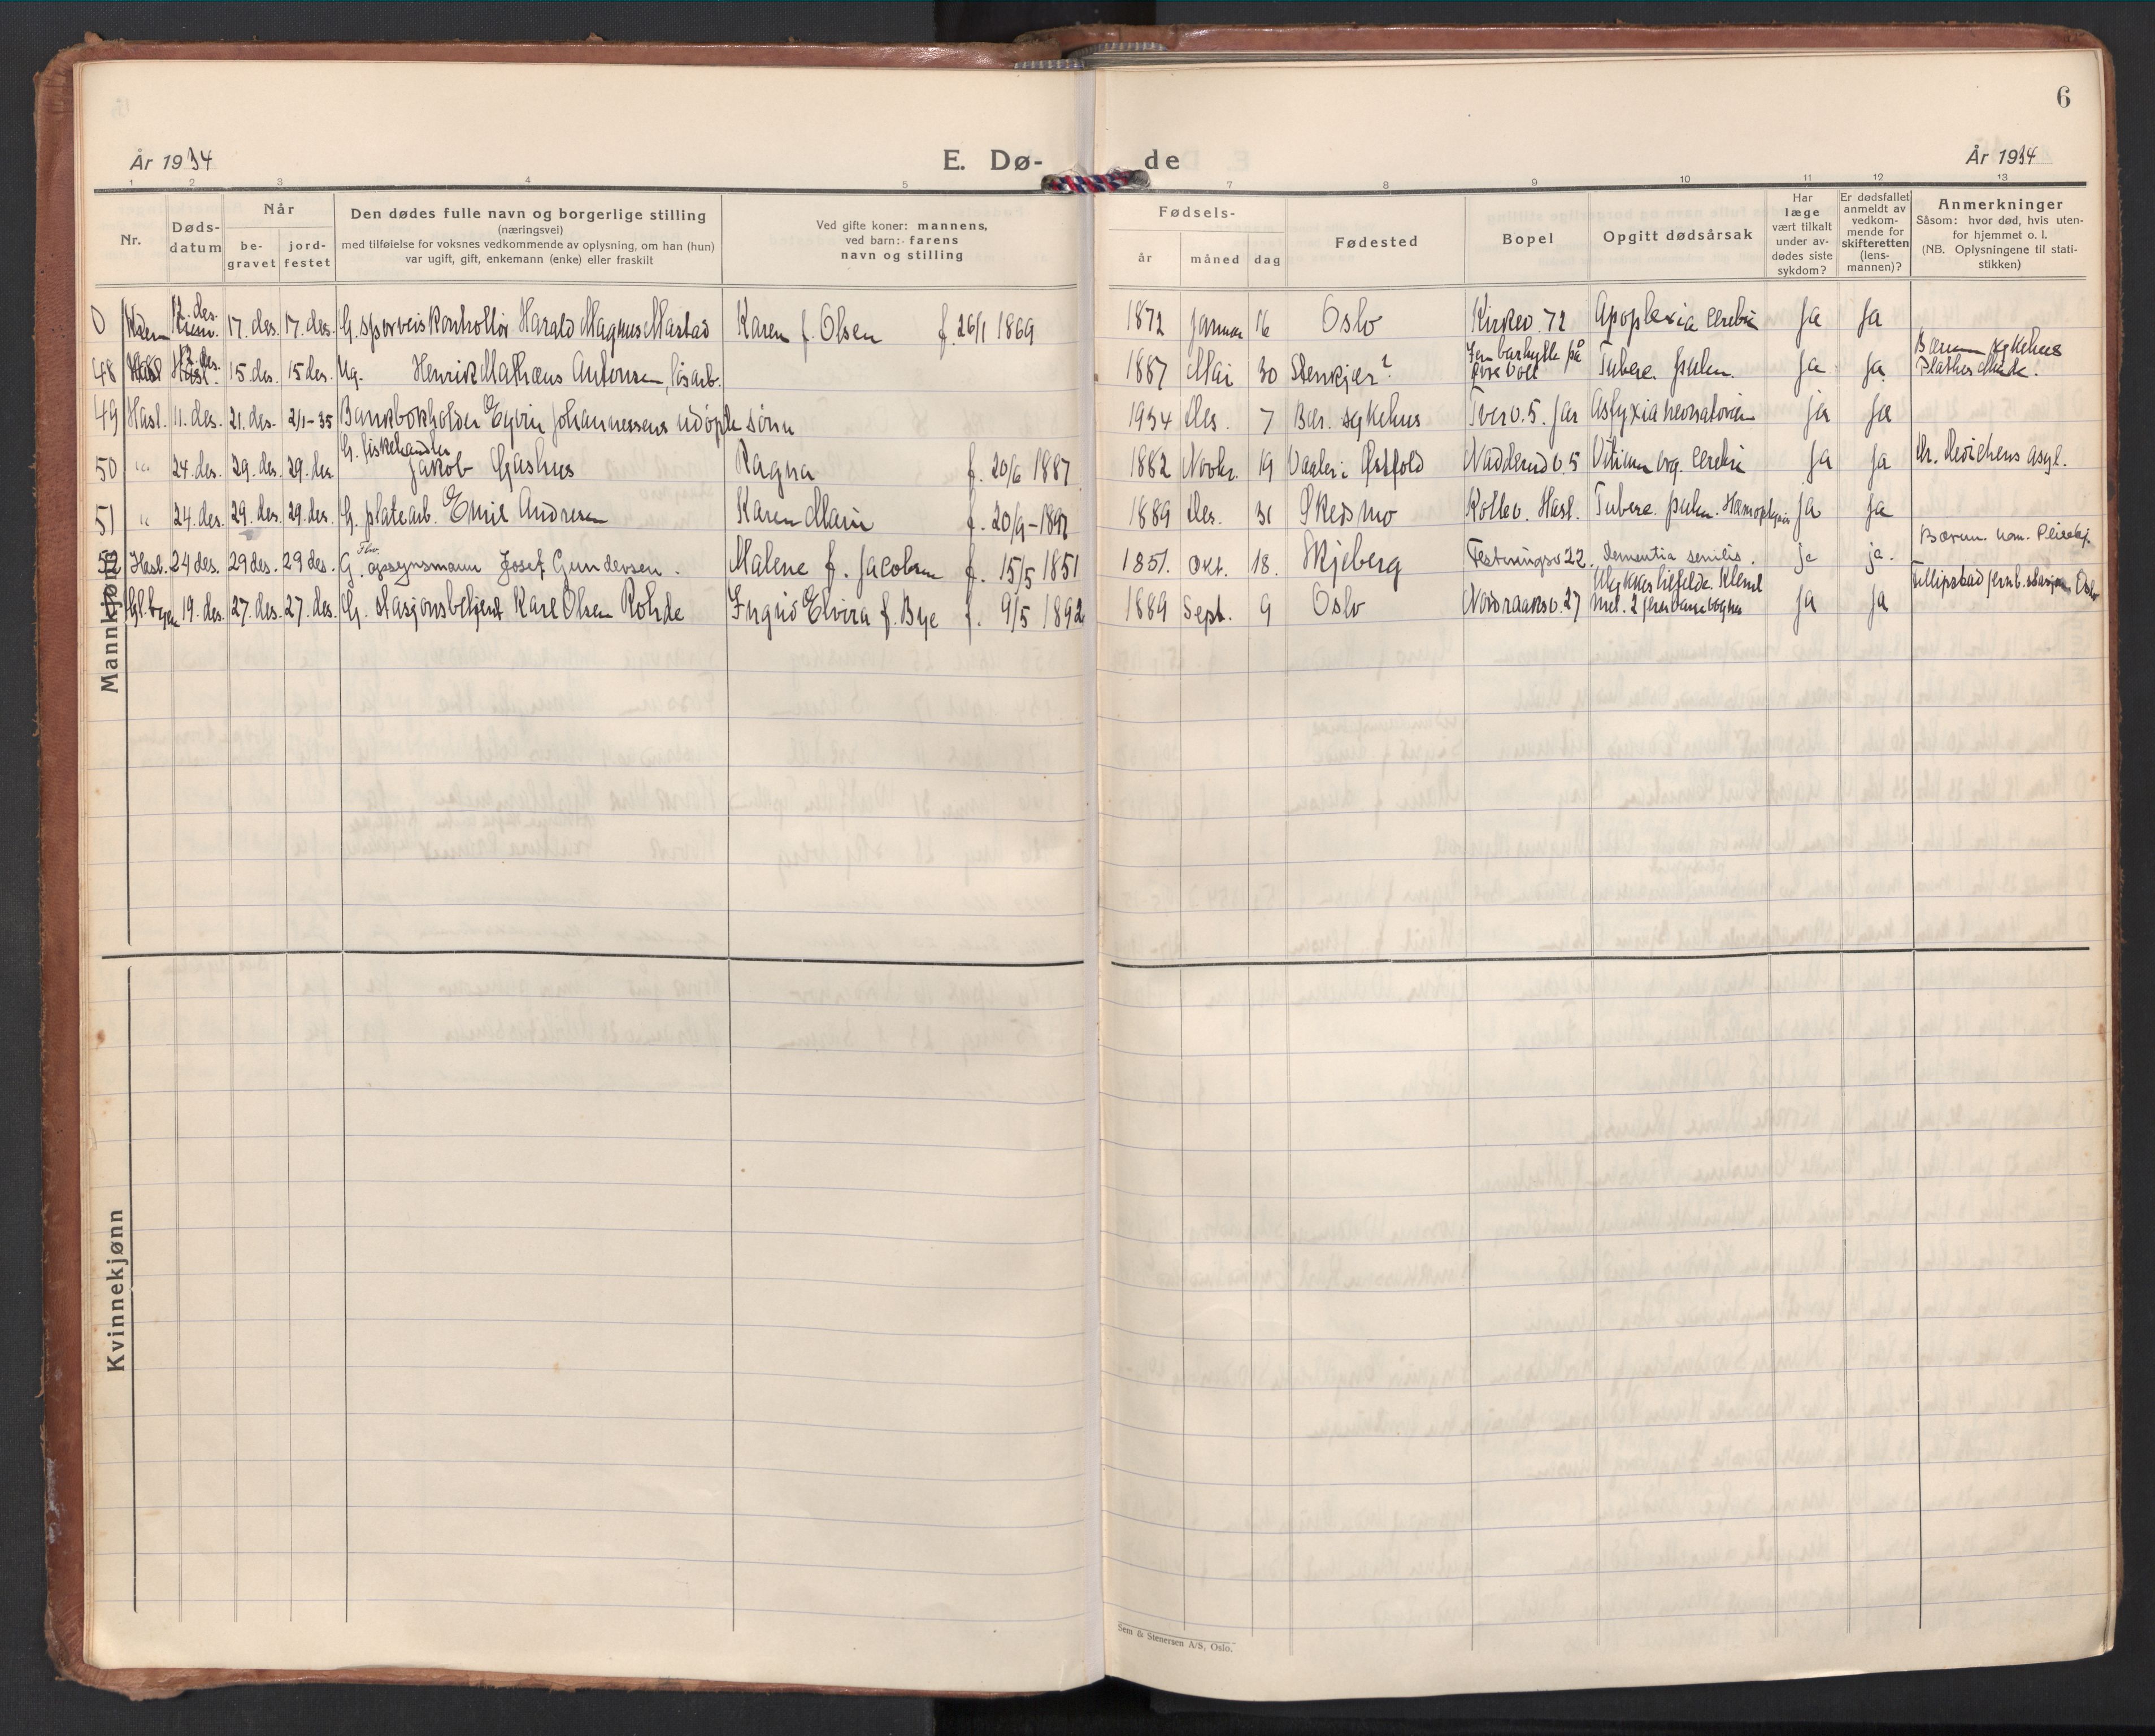 6
År 1934
E. Dø-
de
År 1934
1 2 3 4 5 7 8 9 10 11 12 13
Nr.
Døds-
datum
Når
be-
gravet
jord-
festet
Den dødes fulle navn og borgerlige stilling
(næringsvei)
med tilføielse for voksnes vedkommende av oplysning, om han (hun)
var ugift, gift, enkemann (enke) eller fraskilt
Ved gifte koner: mannens,
ved barn: farens
navn og stilling
Fødsels-
år måned dag
Fødested
Bopel
Opgitt dødsårsak
Har
læge
vært tilkalt
under av-
dødes siste
sykdom?
Er dødsfallet
anmeldt av
vedkom-
mende for
skifteretten
(lens-
mannen)?
Anmerkninger
Såsom: hvor død, hvis uten-
for hjemmet o. l.
(NB. Oplysningene til stati-
stikken)
Mannkjønn
0 12. des. 17. des. 17. des. G. sporveiskontrollør Harald Magnus Mastad Karen f. Olsen f. 26/1 1869 1872 Januar 16 Oslo Kirkev. 72 Apoplexia cerebri ja ja
48 Hasl. 12. des. 15. des. 15 des. Ug. Henrik Mathæus Antonsen, løsarb. 1887 Mai 30 Stenkjær? på Tuberc. pulm. ja ja Bærum sykehus
49 Hasl. 11. des. 21. des. 2/1-35 Bankbokholder Eyvin Johannessens udøpte sønn 1934 Des. 7 Bær. sykehus Tverv. 5. Jar Asfyxia neonatorum ja ja
50 " 24. des. 29. des. 29. des. G. fiskehandler Jakob Gashus Ragna f. 20/6 1887 1882 Novbr. 19 Vaaler i Østfold Nadderudv. 5 Vitium org. cerebri ja ja asyl.
51 " 24. des. 29. des. 29. des. G. platearb. Emil Andresen Karen Marie f. 20/9-1897 1889 Des. 31 Skedsmo Kollev. Hasl. Tuberc. pulm. Hæmoptysis ja ja
52 Hasl. 24 des. 29 des. 29 des. G. opsynsmann Josef Gundersen. Malene f. Jacobsen f. 15/5 1851 1851. Okt. 18. Skjeberg Festningsv 22. Dementia senilis. ja ja. Bærum. kom. Pleiehj.
19. des. 27. des. 27. des. G. stasjonsbetjent Karl Olsen Rohde Ingrid Elvira f. Bye f. 9/5 1892 1889 Sept. 9 Oslo Nordraaksv. 27 Ulykkestilfelde. Klemt mel. 2 jernbanevogner ja ja Fillipstad jernb. stasjon Oslo
Kvinnekjønn
Sem & Stenersen A/S, Oslo.